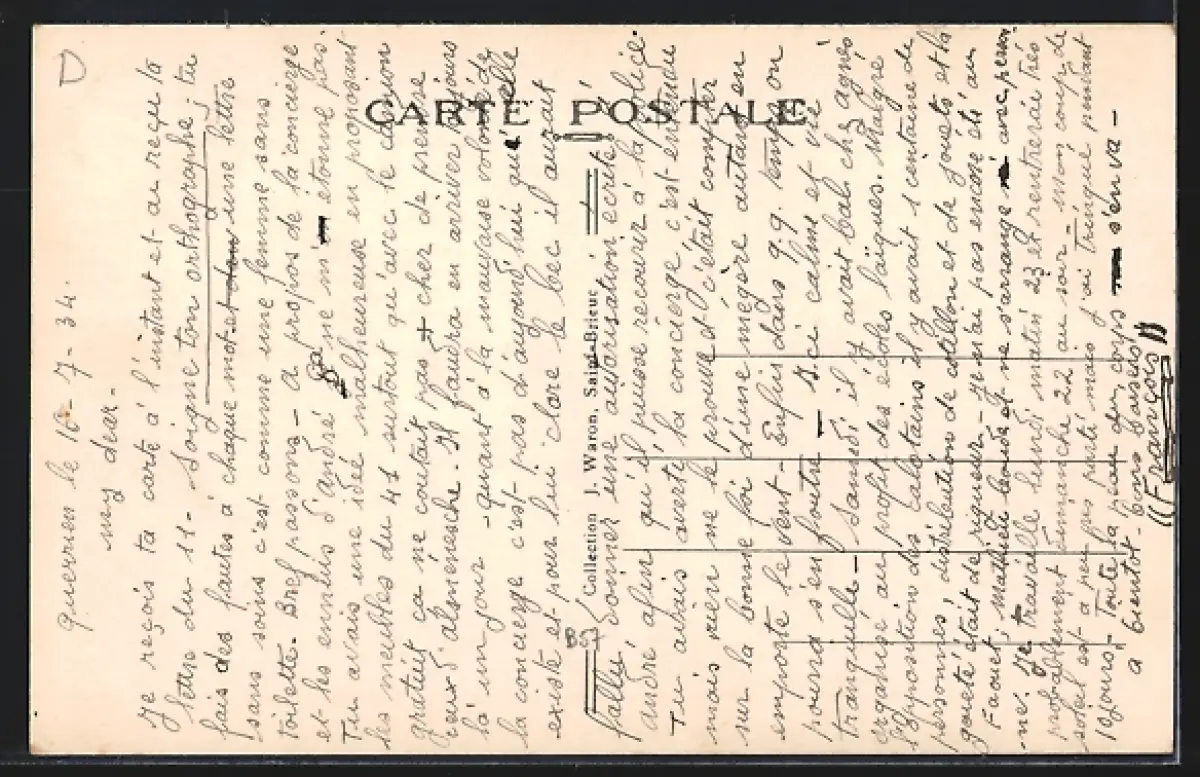 CARTE POSTALE
Collection J. Waron, Saint-Brieuc
D
B57
querrien le 16-7-34.
my dear-
Je reçois ta carte à l'instant et au reçu ta
lettre du 11 - Soigne ton orthographe; tu
fais des fautes à chaque mot et une lettre
sans soins c'est comme une femme sans
toilette. Bref passons - A propos de la concierge
et les ennuis d'andré ça ne m'étonne pas.
Tu avais une idée malheureuse en proposant
les meubles du 41 surtout qu'avec le camion
gratuit ça ne coutait pas + cher de prendre
ceux d'alsménche. Il faudra en arriver toujours
là un jour - quant à la mauvaise volonté de
la concierge c'est pas d'aujourd'hui qu'elle
existe et pour lui clore le bec il aurait
fallu donner une autorisation écrite
andré afin qu'il puisse recourir à la police.
Tu avais averti la concierge c'est entendu
mais rien ne le prouve et c'était compter
sur la bonne foi d'une mégère autant en
emporte le vent - Enfin dans q.q. temps on
pourra s'en foutre - D'ici calme et vie
tranquille - Samedi il y avait bal chz agnès
organisé au profit des écoles laïques. Malgré
l'opposition des calotains il y avait 1 centaine de
personnes distribution de et de jouets et la
gaieté était de rigueur - Je n'ai pas encore été au
Faouet; mathieu boude et ne s'arrange avec person
-né. Je travaille lundi matin 23 et rentrerai très
probablement dimanche 22 au soir - mon coup de
soleil est à peu près parti mais j'ai trinqué pendant
10 jours - Toute la peau du corps s'en va -
a bientôt - bons baisers
(((François)))